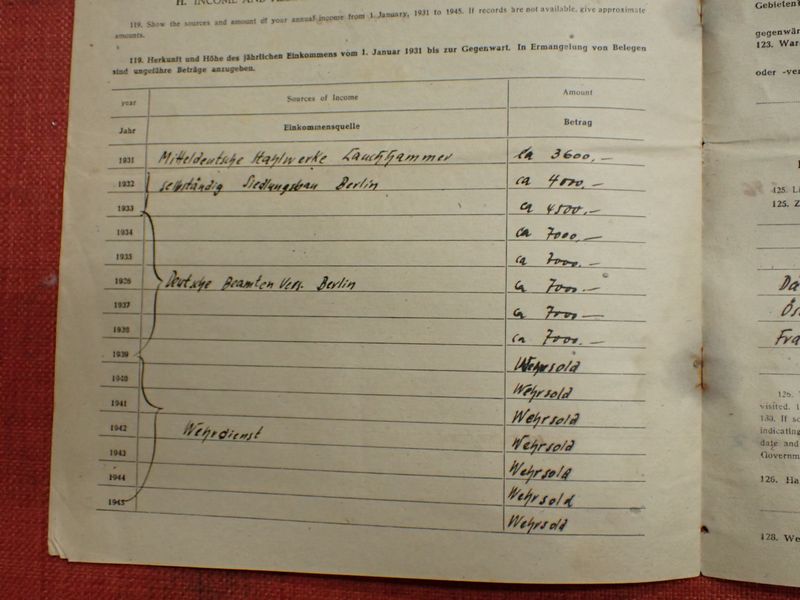 H. INCOME AND
119. Show the sources and amount of your annual income from 1 January, 1931 to 1945. If records are not available, give approximate
amounts.
119. Herkunft und Höhe des jährlichen Einkommens vom 1. Januar 1931 bis zur Gegenwart. In Ermangelung von Belegen
sind ungefähre Beträge anzugeben.
year Sources of Income Amount
Jahr Einkommensquelle Betrag
1931 Mitteldeutsche Stahlwerke Lauchhammer ca 3600,-
1932 selbständig Siedlungsbau Berlin ca 4000,-
1933 ca 4500,-
1934 ca 7000,-
1935 ca 7000,-
1936 Deutsche Beamten Vers. Berlin ca 7000,-
1937 ca 7000,-
1938 ca 7000,-
1939 Wehrsold
1940 Wehrsold
1941 Wehrsold
1942 Wehrdienst Wehrsold
1943 Wehrsold
1944 Wehrsold
1945 Wehrsold
Gebieten
gegenwär
123. War
oder -ver
125. Li
125. Z
Da
Ös
Fra
126.
visited. I
130. If so
indicating
date and
Governm
126. Ha
128. We